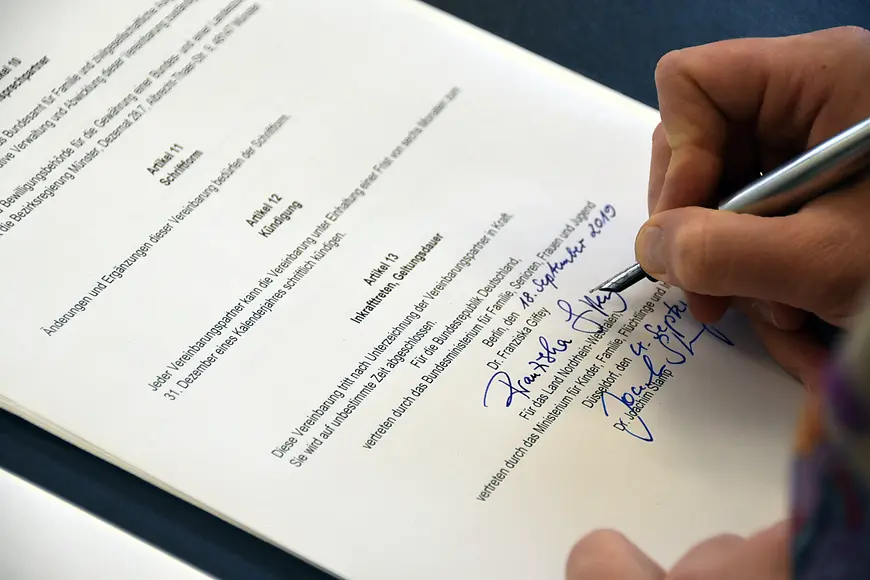 Artikel 10
das Bundesamt für Familie
Verwaltung und Abwicklung dieser Vereinbarung
Bewilligungsbehörde für die Gewährung einer Bundes- und einer
die Bezirksregierung Münster, Dezernat 28.7, Albrecht-Thaer-Str. 9, 48147 Münster
Artikel 11
Schriftform
Änderungen und Ergänzungen dieser Vereinbarung bedürfen der Schriftform.
Artikel 12
Kündigung
Jeder Vereinbarungspartner kann die Vereinbarung unter Einhaltung einer Frist von sechs Monaten zum
31. Dezember eines Kalenderjahres schriftlich kündigen.
Artikel 13
Inkrafttreten, Geltungsdauer
Diese Vereinbarung tritt nach Unterzeichnung der Vereinbarungspartner in Kraft.
Sie wird auf unbestimmte Zeit abgeschlossen.
Für die Bundesrepublik Deutschland,
vertreten durch das Bundesministerium für Familie, Senioren, Frauen und Jugend
Berlin, den 18. September 2019
Dr. Franziska Giffey
Franziska Giffey
Für das Land Nordrhein-Westfalen
vertreten durch das Ministerium für Kinder, Familie, Flüchtlinge und
Düsseldorf, den 4. Septe
Dr. Joachim Stamp